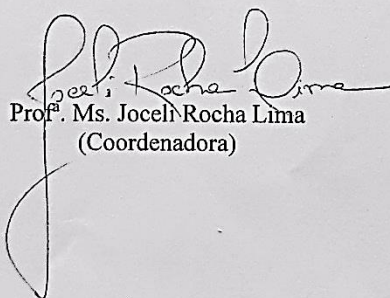 Joceli Rocha Lima
Profª. Ms. Joceli Rocha Lima
(Coordenadora)